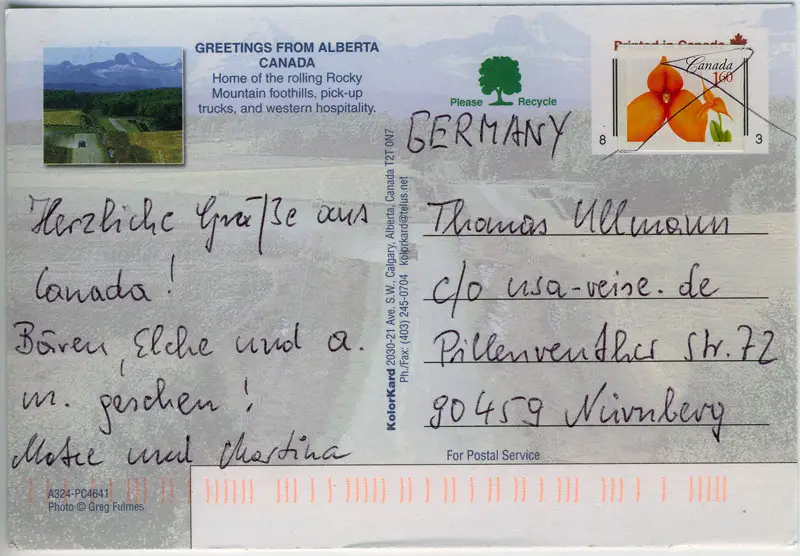 GREETINGS FROM ALBERTA
CANADA
Home of the rolling Rocky
Mountain foothills, pick-up
trucks, and western hospitality.
Please Recycle
Printed in Canada
Canada
160
8 3
GERMANY
Herzliche Grüße aus
Canada!
Bären, Elche und a.
m. gesehen!
und Martina
KolorKard 2030-21 Ave. S.W., Calgary, Alberta, Canada T2T 0N7
Ph./Fax: (403) 245-0704 kolorkard@telus.net
Thomas Ullmann
c/o usa-reise.de
Pillenreuther Str. 72
90459 Nürnberg
For Postal Service
A324-PC4641
Photo © Greg Fulmes